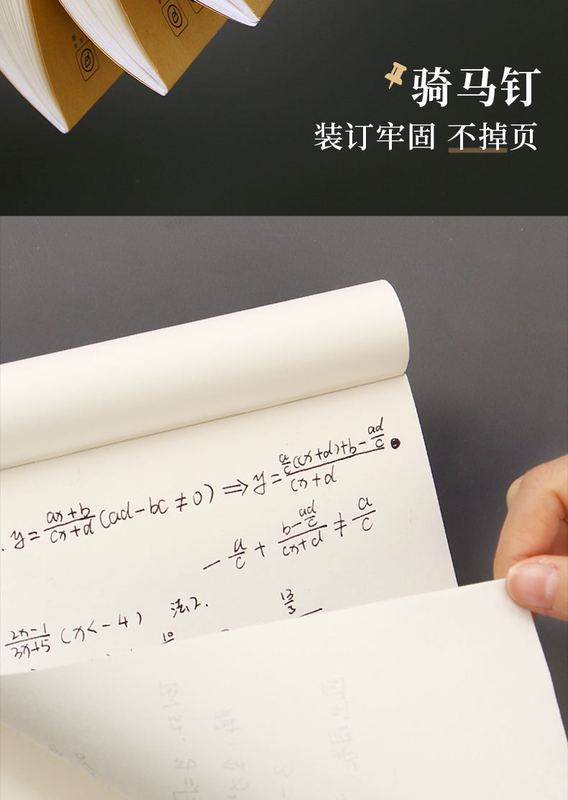 骑马钉
装订牢固 不掉页
y=\frac{ax+b}{cx+d}(ad-bc≠0)⇒y=\frac{\frac{a}{c}(cx+d)+b-\frac{ad}{c}}{cx+d}
-\frac{a}{c}+\frac{b-\frac{ad}{c}}{cx+d}≠\frac{a}{c}
\frac{2x-1}{3x+5}(x<-4) 法2. \frac{13}{3}
10